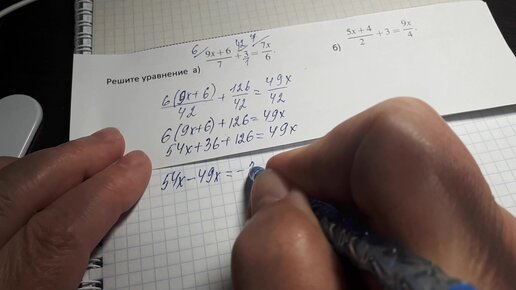 Решите уравнение а) (9x+6)/7 + 3/1 = 7x/6. б) (5x+4)/2 + 3 = 9x/4.
6(9x+6)/42 + 126/42 = 49x/42
6(9x+6)+126=49x
54x+36+126=49x
54x-49x=-3